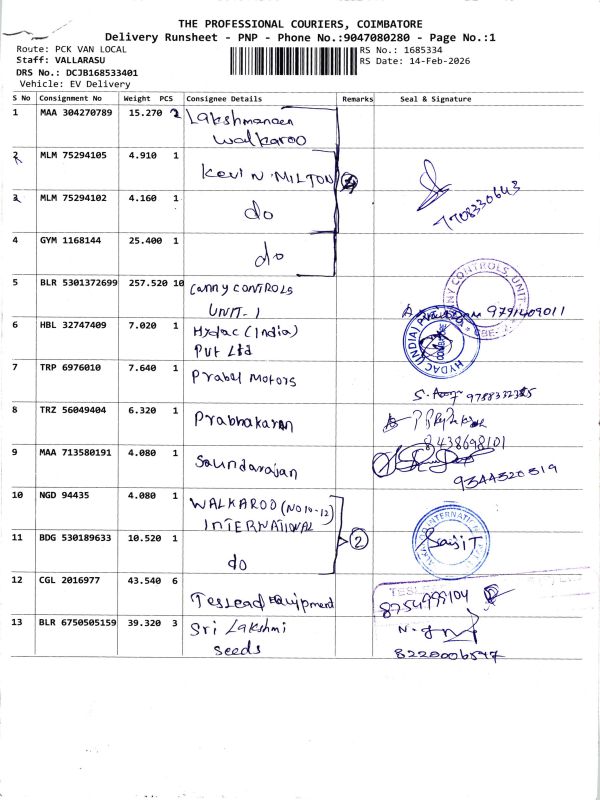 THE PROFESSIONAL COURIERS, COIMBATORE
Delivery Runsheet - PNP - Phone No.:9047080280 - Page No.:1
Route: PCK VAN LOCAL
RS No.: 1685334
Staff: VALLARASU
RS Date: 14-Feb-2026
DRS No.: DCJB168533401
Vehicle: EV Delivery
S No Consignment No Weight PCS Consignee Details Remarks Seal & Signature
1 MAA 304270789 15.270 2 Lakshmanan
Walkaroo
2 MLM 75294105 4.910 1 Kevin. MILTON
3 MLM 75294102 4.160 1 do
7708330643
4 GYM 1168144 25.400 1 do
5 BLR 5301372699 257.520 10 Canny CONTROLS
UNIT-1
9791409011
6 HBL 32747409 7.020 1 Hydac (India)
Pvt Ltd
HYDAC (INDIA)
7 TRP 6976010 7.640 1 Prabel Motors
8 TRZ 56049404 6.320 1 Prabhakaran
8438698101
9 MAA 713580191 4.080 1 Saundarajan
9344320319
10 NGD 94435 4.080 1 WALKAROO (NO 10-12)
INTERNATIONAL
11 BDG 530189633 10.520 1 do
2
12 CGL 2016977 43.540 6 Teslead Equipment
8754999104
13 BLR 6750505159 39.320 3 Sri Lakshmi
Seeds
8220006547